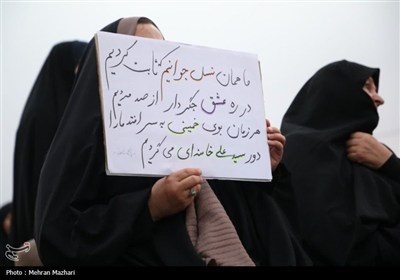 ما همان نسل جوانیم که ثابت کردیم
در ره عشق جگردار از صد مردیم
هر زمان بوی خمینی به سر افتد ما را
دور سید علی خامنه‌ای می گردیم
Photo : Mehran Mazhari